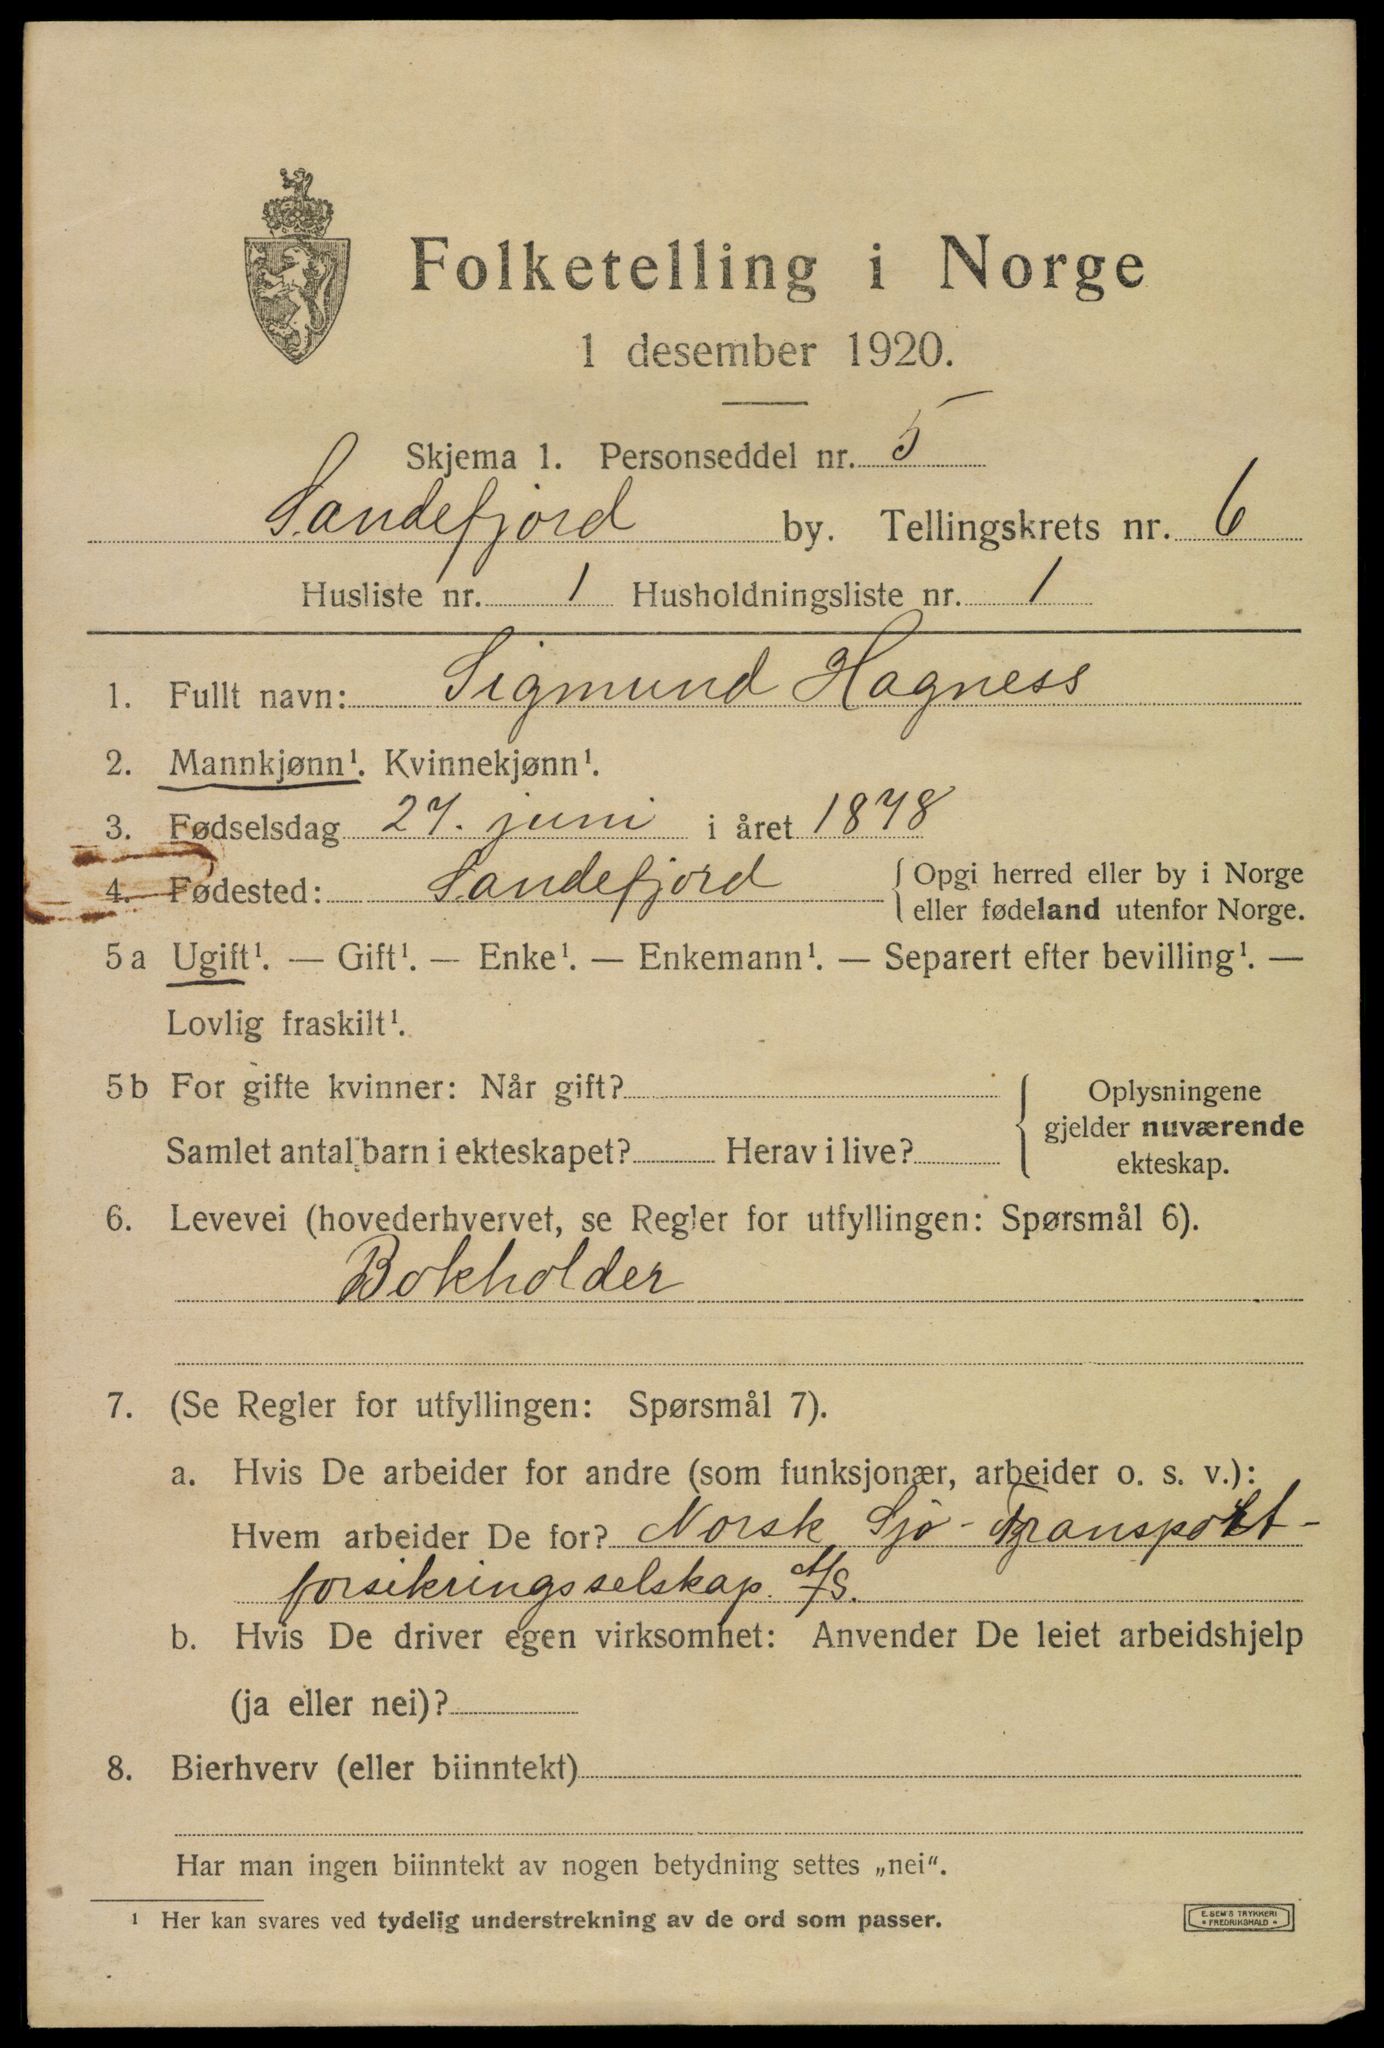 Folketelling i Norge
1 desember 1920.
Skjema 1. Personseddel nr. 5
Sandefjord by. Tellingskrets nr. 6
Husliste nr. 1 Husholdningsliste nr. 1
1. Fullt navn: Sigmund Hagness
2. Mannkjønn¹. Kvinnekjønn¹.
3. Fødselsdag 27. juni i året 1878
4. Fødested: Sandefjord { Opgi herred eller by i Norge
eller fødeland utenfor Norge.
5a Ugift¹. — Gift¹. — Enke¹. — Enkemann¹. — Separert efter bevilling¹. —
Lovlig fraskilt¹.
5b For gifte kvinner: Når gift?
Samlet antal barn i ekteskapet? Herav i live?
{ Oplysningene
gjelder nuværende
ekteskap.
6. Levevei (hovederhvervet, se Regler for utfyllingen: Spørsmål 6).
Bokholder
7. (Se Regler for utfyllingen: Spørsmål 7).
a. Hvis De arbeider for andre (som funksjonær, arbeider o. s. v.):
Hvem arbeider De for? Norsk Sjø- Transport-
forsikringsselskap. A/S.
b. Hvis De driver egen virksomhet: Anvender De leiet arbeidshjelp
(ja eller nei)?
8. Bierhverv (eller biinntekt)
Har man ingen biinntekt av nogen betydning settes „nei“.
¹ Her kan svares ved tydelig understrekning av de ord som passer.
E. SEM'S TRYKKERI
• FREDRIKSHALD •